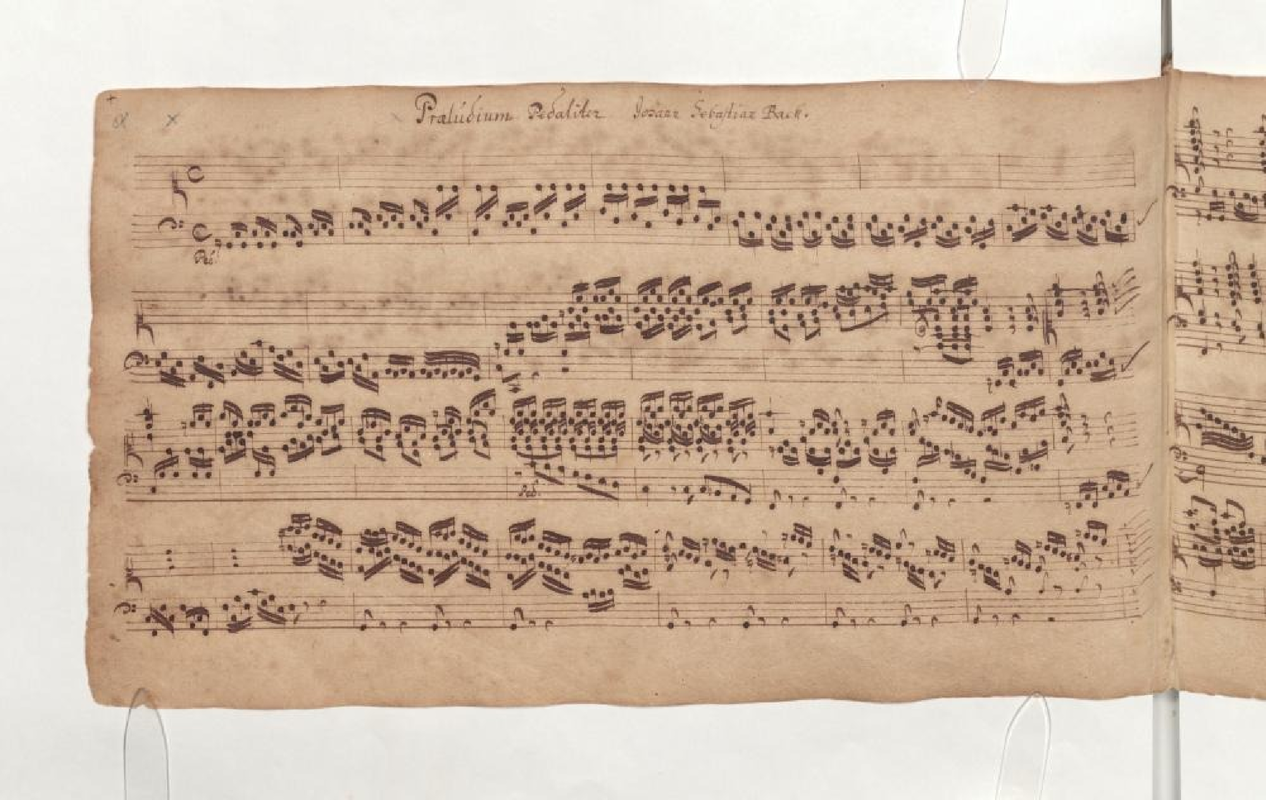 Præludium Pedaliter Johann Sebastian Bach.
Ped.
Ped.